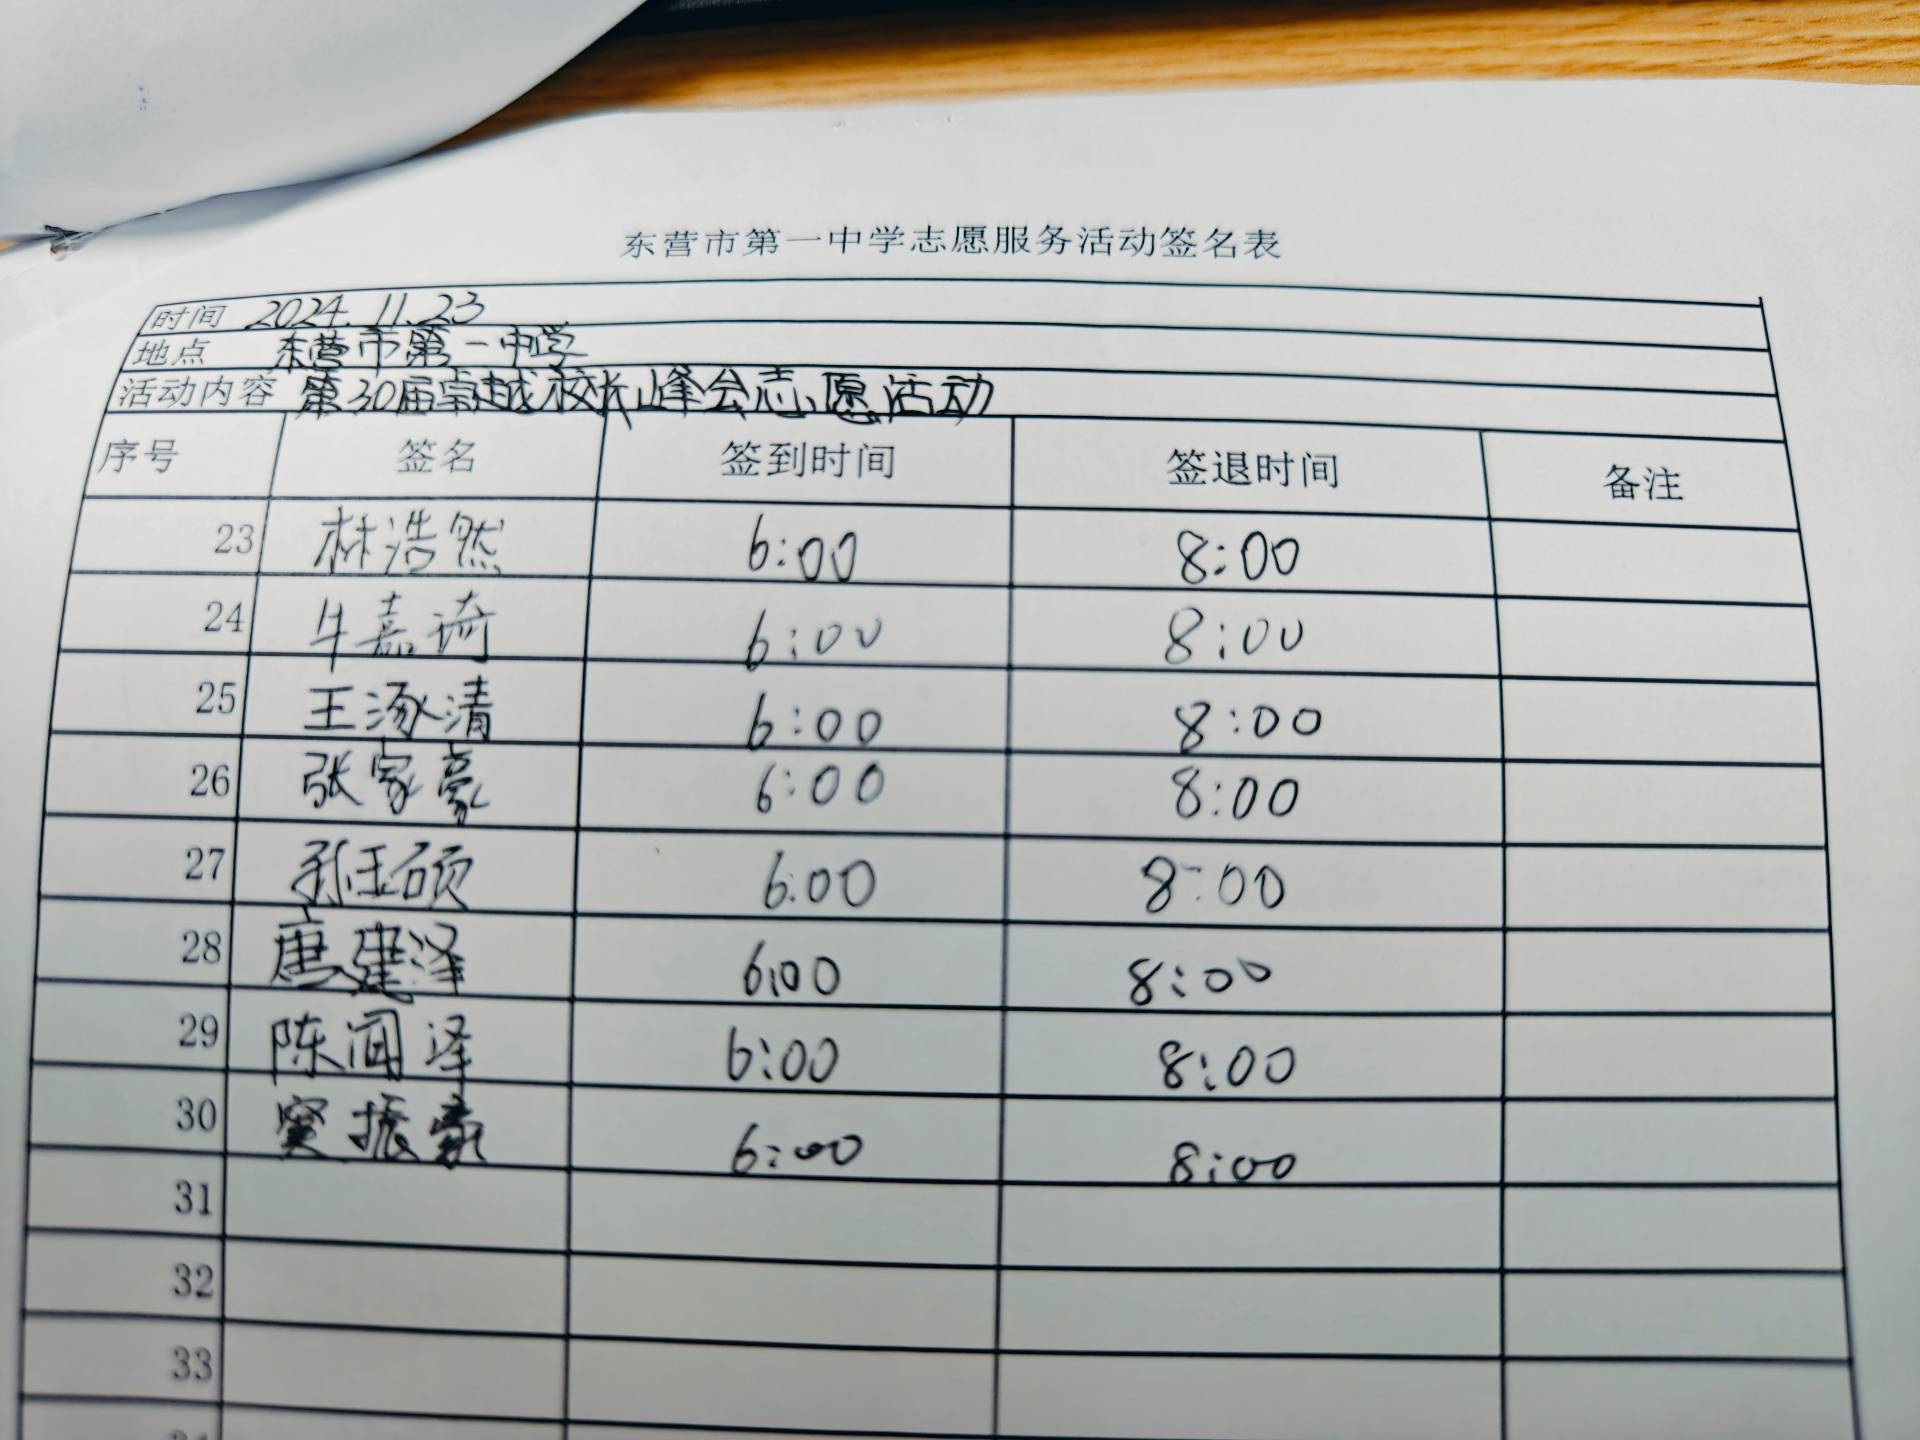 东营市第一中学志愿服务活动签名表
时间 2024.11.23
地点 东营市第一中学
活动内容 第30届卓越校长峰会志愿活动
序号 签名 签到时间 签退时间 备注
23 林浩然 6:00 8:00
24 牛嘉琦 6:00 8:00
25 王涿清 6:00 8:00
26 张家豪 6:00 8:00
27 孙玉硕 6:00 8:00
28 唐建泽 6:00 8:00
29 陈闻泽 6:00 8:00
30 窦振豪 6:00 8:00
31
32
33